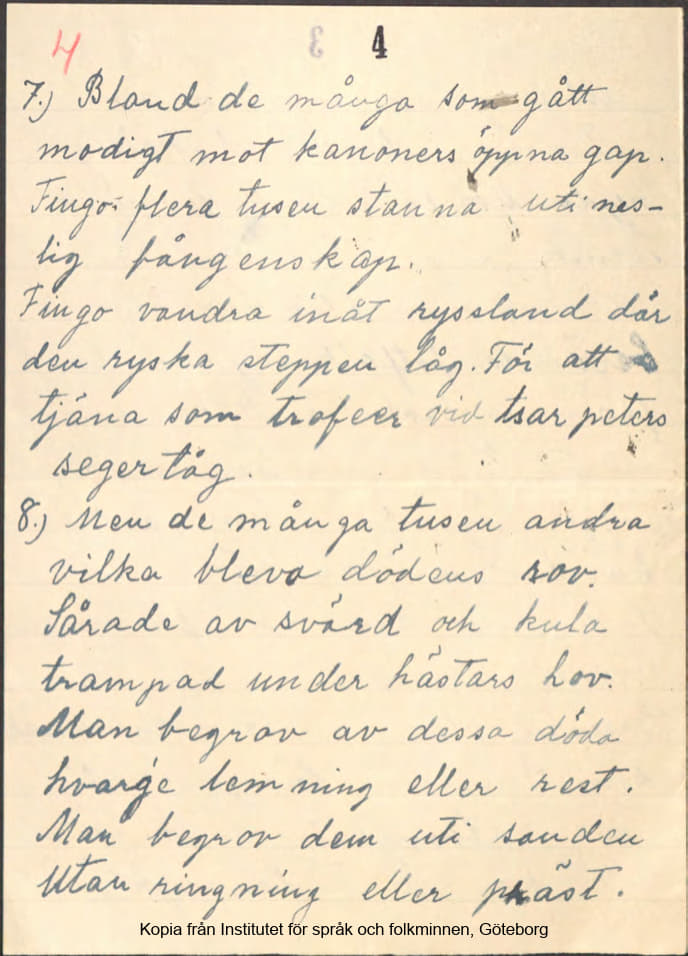 4 3 4
7.) Bland de många som gått
modigt mot kanoners öppna gap.
Fingo flera tusen stanna uti nes-
lig fångenskap.
Fingo vandra inåt ryssland där
den ryska steppen låg. För att
tjäna som trofeer vid tsar peters
segertåg.
8.) Men de många tusen andra
vilka blevo dödens rov.
Sårade av svärd och kula
trampad under hästars hov.
Man begrov av dessa döda
hvarge lemning eller rest.
Man begrov dem uti sanden
Utan ringning eller präst.
Kopia från Institutet för språk och folkminnen, Göteborg